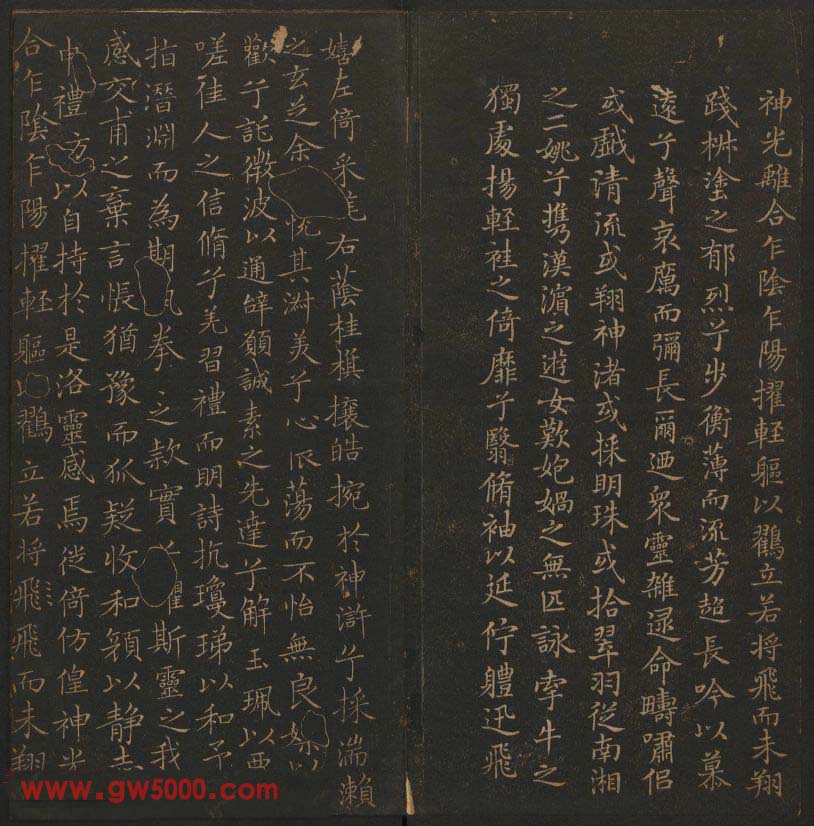 神光離合乍陰乍陽擢軽軀以鸖立若将飛而未翔
踐椒塗之郁烈兮步衡薄而流芳超長吟以慕
遠兮聲哀厲而彌長爾迺衆靈雜遝命疇嘯侣
或戲清流或翔神渚或採明珠或拾翠羽従南湘
之二姚兮攜漢濵之遊女歎匏媧之無匹詠牽牛之
獨處揚軽袿之倚靡兮翳脩袖以延佇軆迅飛
嬉左倚采旄右蔭桂旗攘皓捥於神滸兮採湍瀬
之玄芝余恱其淑美兮心振蕩而不怡無良媒以
歡兮託微波以通辝願誠素之先達兮解玉珮以要
嗟佳人之信脩兮羌習禮而明詩抗瓊珶以和予
指潛淵而為期執拳之款實兮懼斯靈之我
感交甫之棄言悵猶豫而狐疑收和顔以静志
申禮防以自持於是洛靈感焉徙倚仿偟神光
合乍陰乍陽擢軽軀以鸖立若将飛飛而未翔
www.gw5000.com